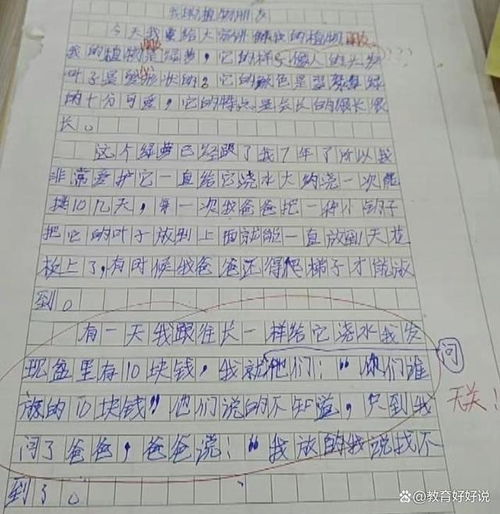 我的植物朋友
今天我要给大家讲我的植物
我的植物是绿萝,它的样子像人的头发
叶子是爱心形状的。它的颜色是
的十分可爱,它的特点是会长的很长很
长。
这个绿萝已经跟了我7年了所以我
非常爱护它一直给它浇水大约浇一次能
挨10几天,第一次我爸爸把一种小钩子
把它的叶子放到上面就能一直放到天花
板上了,有时候我爸爸还得爬梯子才能放
到。
有一天我跟往长一样给它浇水我发
现盆里有10块钱,我就他们:“你们谁
问
放的10块钱”他们说的不知道,只到我
无关!
问了爸爸,爸爸说:“我放的我说找不
到了。
@教育好好说